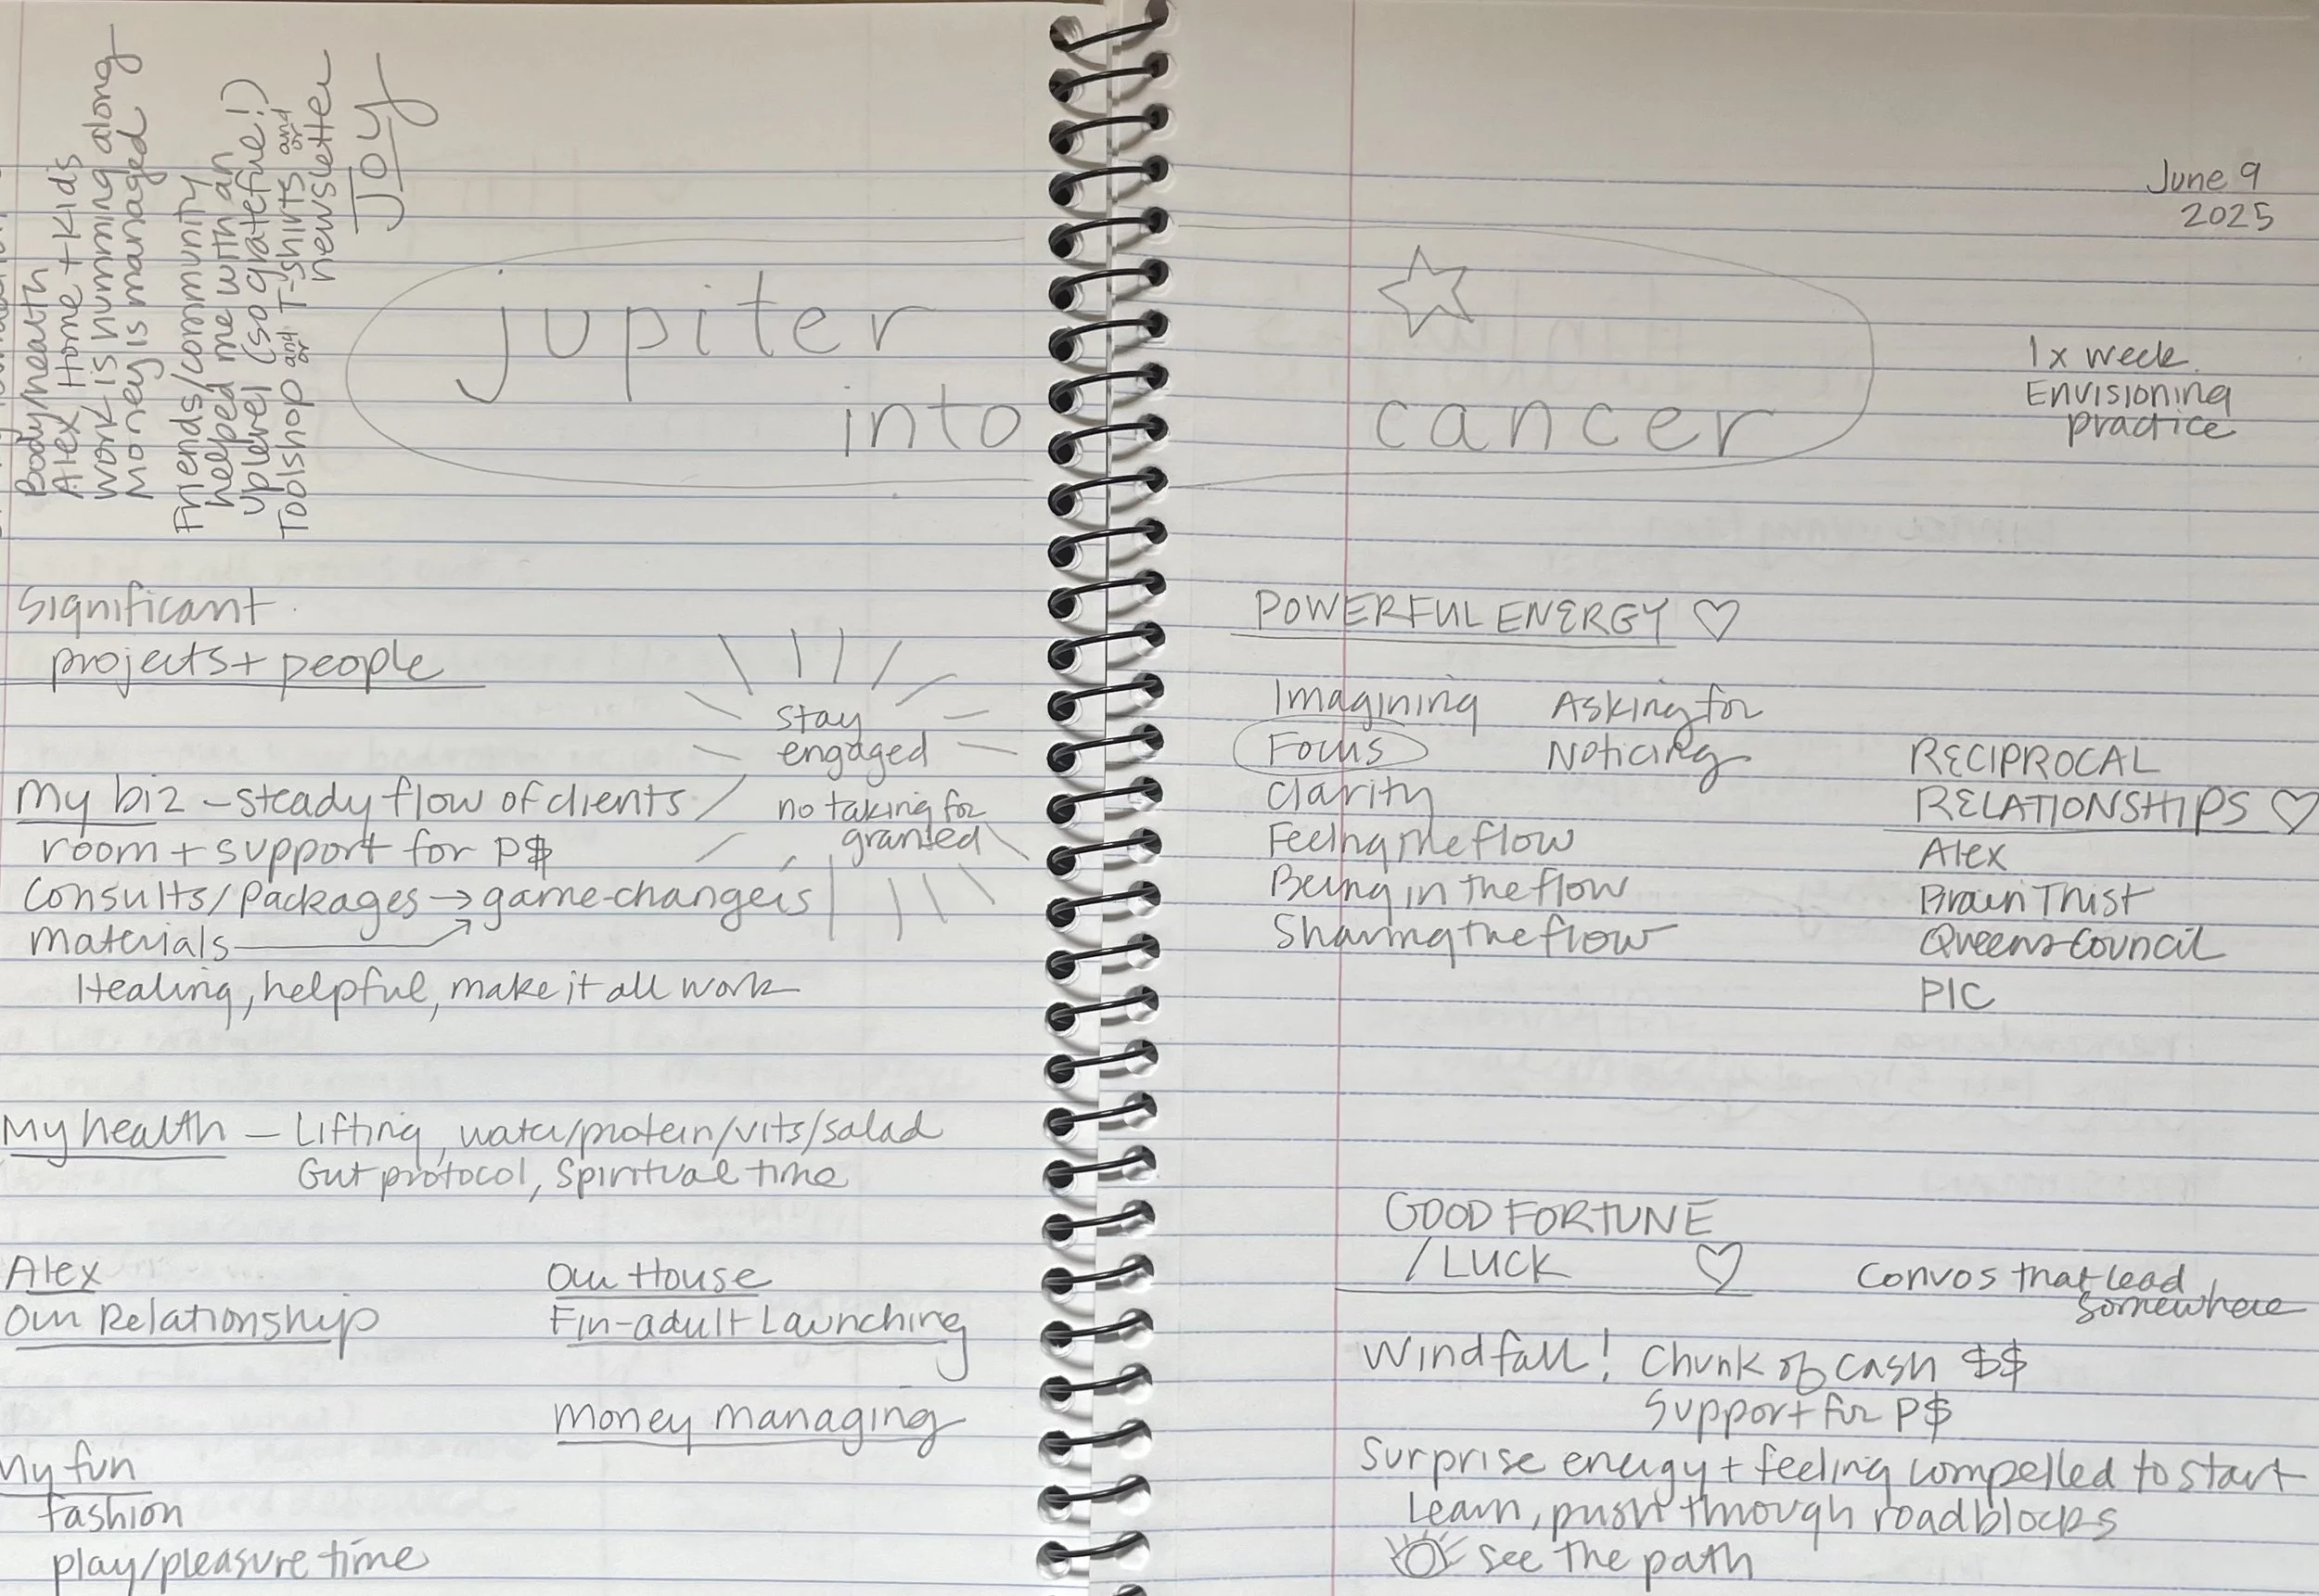 Body/health
Alex Home + Kids
Work is humming along
Money is managed
Friends/community
helped me with an
uplevel (so grateful!)
Toolshop and or T-shirts and or
newsletter
JOY
jupiter
into
Significant
projects + people
stay
engaged
no taking for
granted
My biz - steady flow of clients
room + support for P$
Consults/Packages → game-changers
Materials
Healing, helpful, make it all work
My health - Lifting, water/protein/vits/salad
Gut protocol, Spiritual time
Alex
Our Relationship
Our House
Fin-adult Launching
Money managing
My fun
fashion
play/pleasure time
June 9
2025
cancer
1x week
Envisioning
practice
POWERFUL ENERGY ♡
Imagining
Focus
Clarity
Feeling the flow
Being in the flow
Sharing the flow
Asking for
Noticing
RECIPROCAL
RELATIONSHIPS ♡
Alex
Brain Trust
Queens Council
PIC
GOOD FORTUNE
/LUCK ♡
Convos that lead
somewhere
Windfall! Chunk of cash $$
Support for P$
Surprise energy + feeling compelled to start
Learn, push through roadblocks
see the path